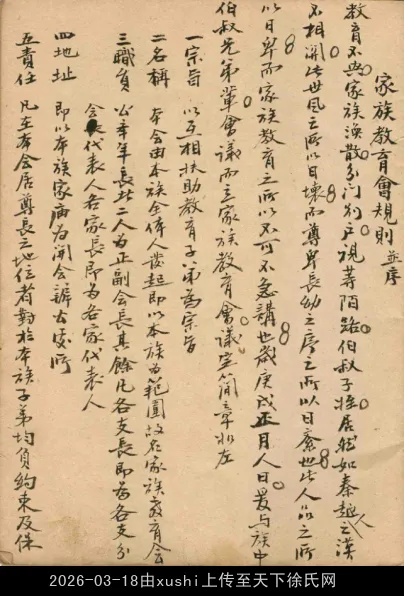 家族教育會規則 並序
教育不興家族渙散分门别户視等陌路伯叔子姓居然如秦越人之漠
不相関此世風之所以日壞而尊卑長幼之序之所以日紊也此人品之所
以日卑而家族教育之所以不可不急講也歲庚戌正月人日晟与族中
伯叔兄弟輩會議而立家族教育會議定简章如左
一宗旨 以互相扶助教育子弟為宗旨
二名稱 本会由本族全体人发起即以本族为範圍故名家族教育会
三職員 公举年長者二人为正副会長其餘凡各支長即为各支分
会代表人各家長即为各家代表人
四地址 即以本族家庙为開会辦公處所
五責任 凡在本会居尊長之地位者對於本族子弟均負約束及保
2026-03-18由xushi上传至天下徐氏网